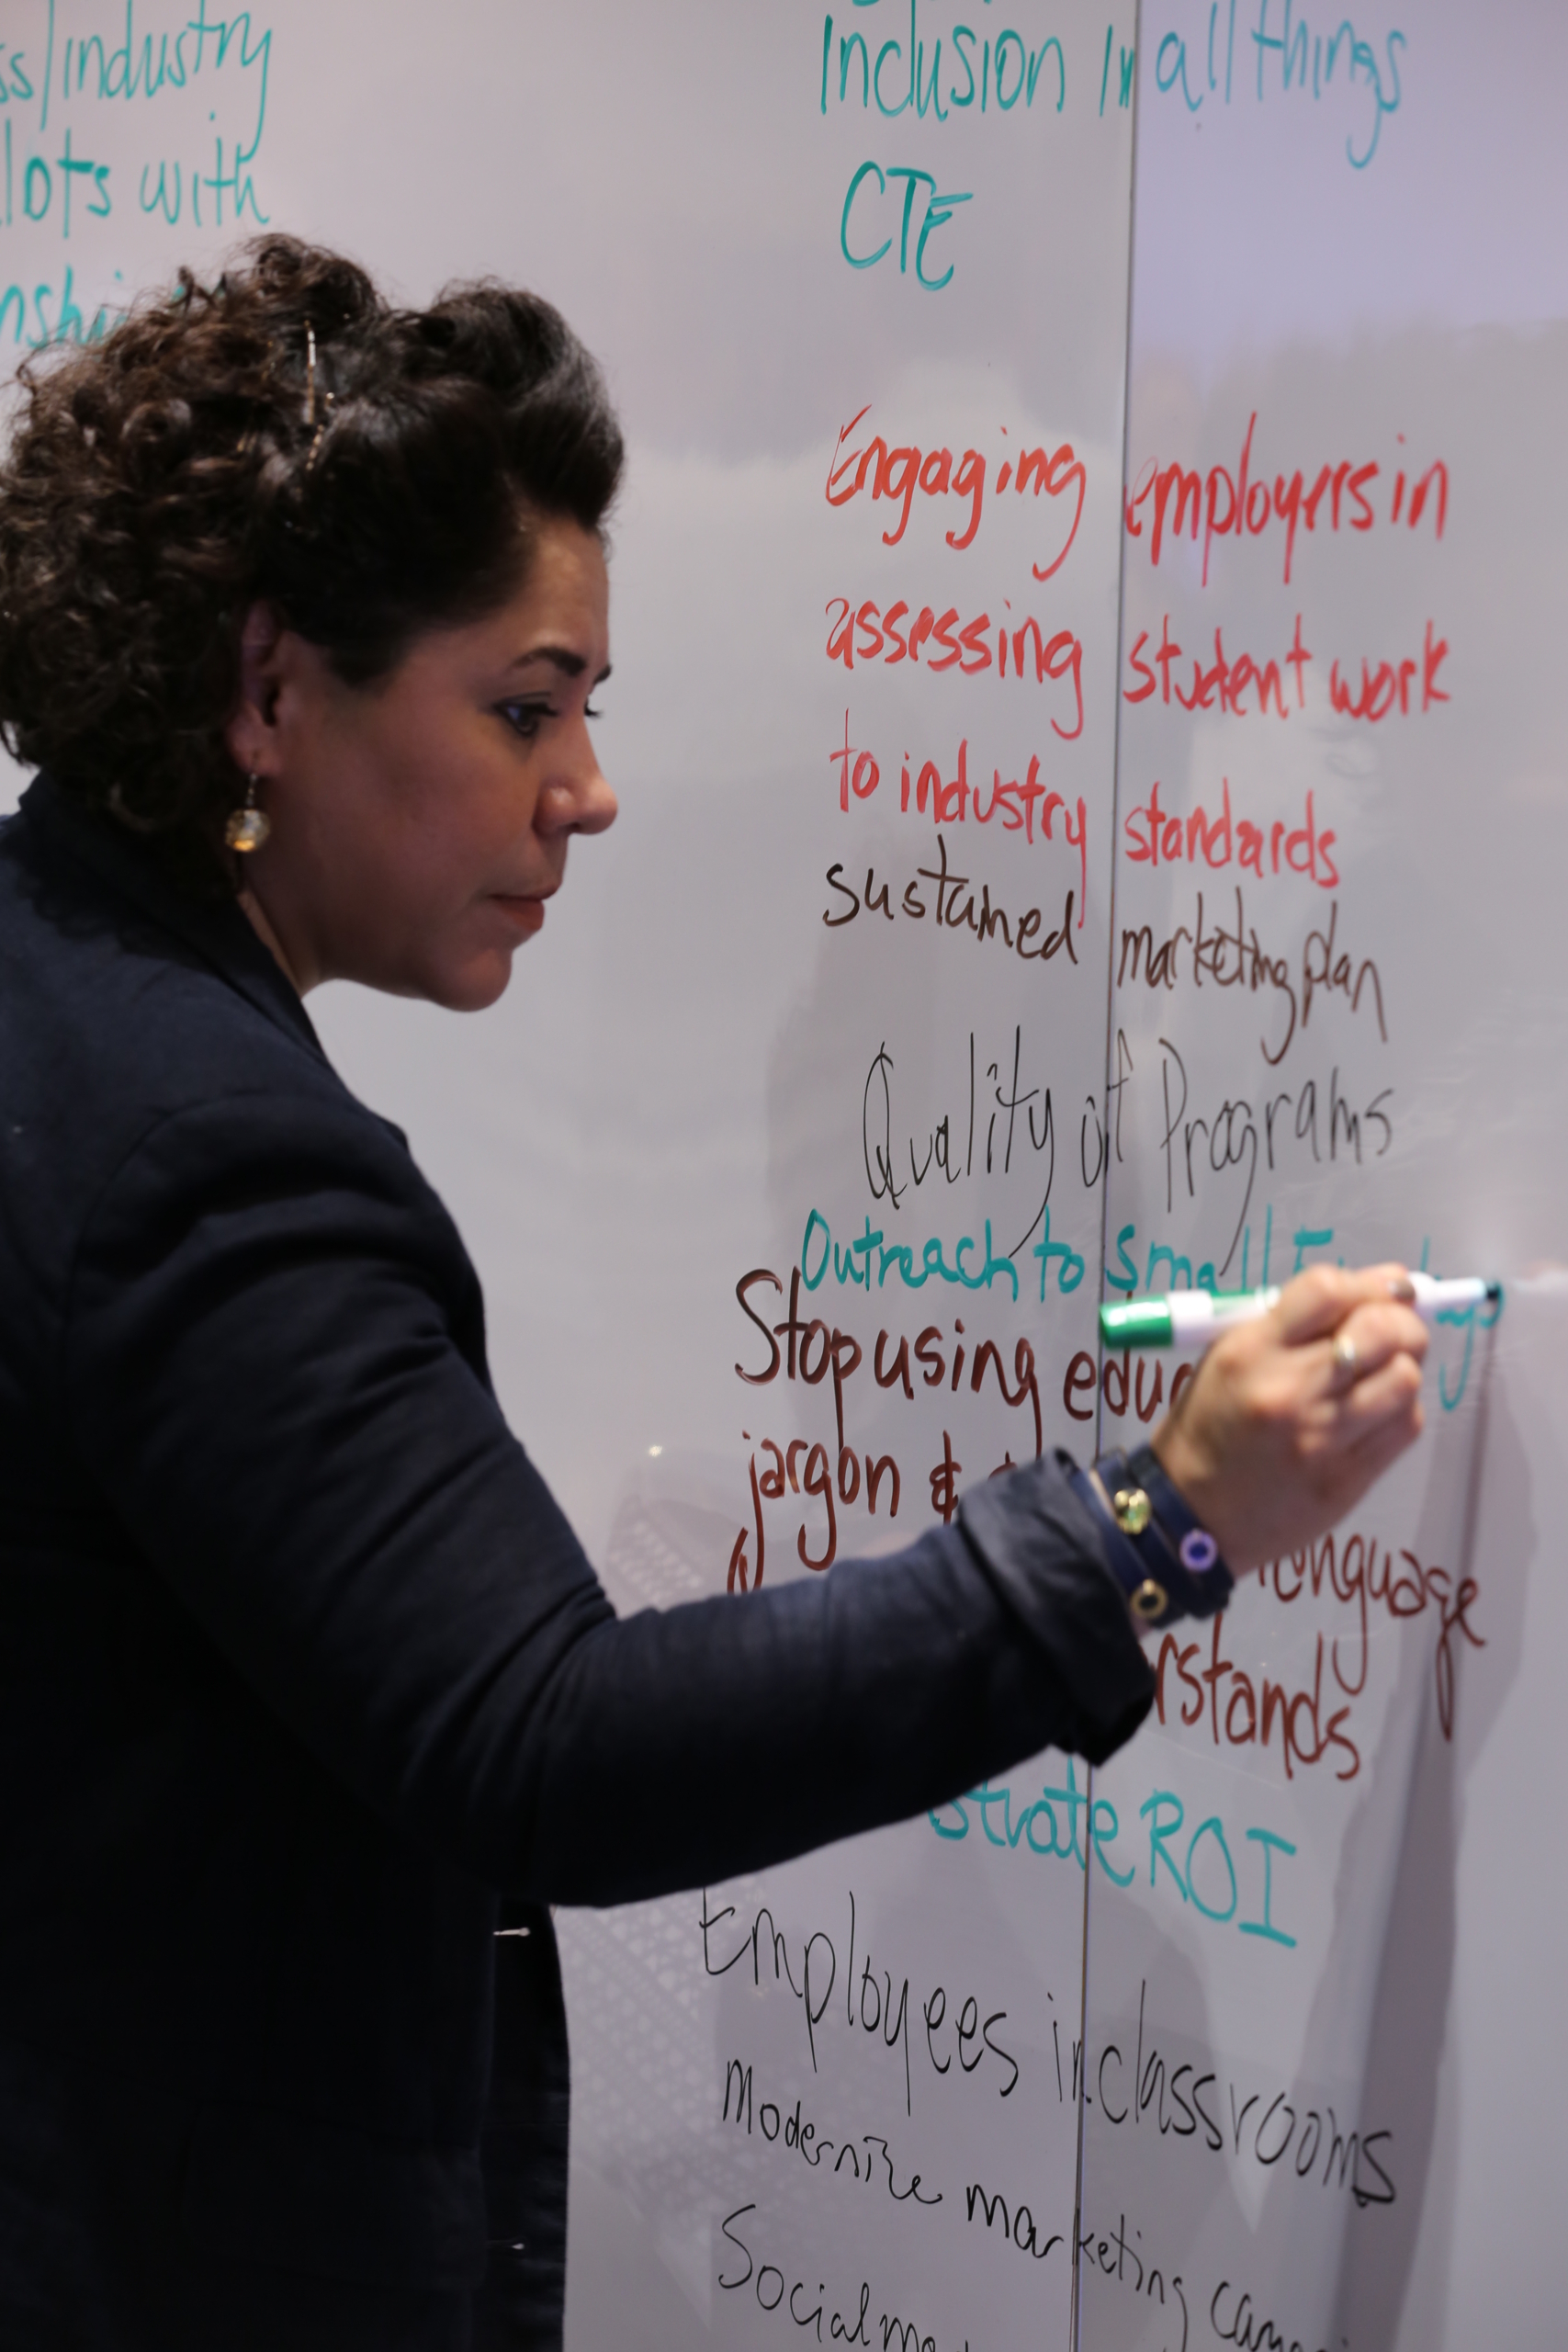 industry
with
Inclusion in all things
CTE
Engaging employers in
assessing student work
to industry standards
sustained marketing plan
Quality of Programs
Outreach to small
Stop using
jargon &
language
ROI
Employees in classrooms
Modernize marketing
Social